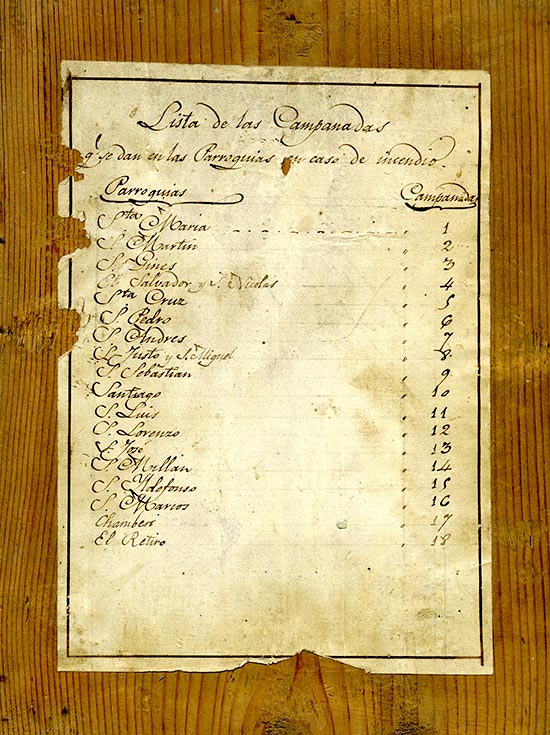 Lista de las Campanadas
q.e se dan en las Parroquias en caso de incendio.
Parroquias Campanadas
Sta Maria 1
S. Martin " 2
S. Gines " 3
El Salvador y S. Nicolas " 4
Sta Cruz " 5
S. Pedro " 6
S. Andres " 7
S. Justo y S. Miguel " 8
S. Sebastian " 9
Santiago " 10
S. Luis " 11
S. Lorenzo " 12
S. José " 13
S. Millan " 14
S. Yldefonso " 15
S. Marcos " 16
Chamberi " 17
El Retiro " 18